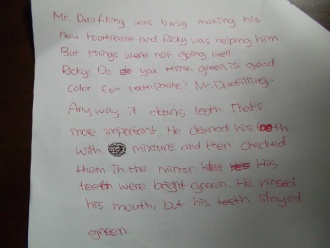 Mr. Duofilling was busy making his
new toothpaste and Ricky was helping him
But things were not going well
Ricky: Do you think green is good
color for toothpaste? Mr. Duofilling.
Any way it cleans teeth That's
more important He cleaned his teeth
with mixture and then checked
them in the mirror His
teeth were bright green. He rinsed
his mouth, but his teeth stayed
green.